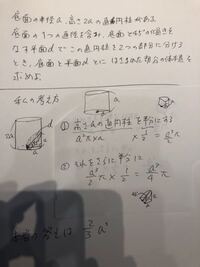 底面の半径a, 高さ2aの直円柱がある。
底面の1つの直径を含み, 底面と45°の傾きを
なす平面αでこの直円柱を2つの部分に分ける
とき, 底面と平面αとにはさまれた部分の体積を
求めよ。
ぼくの考え方
a
2a
d
a
a
① 高さaの直円柱を半分にする
a²π×a ×1/2 = a³/2 π
② それをさらに半分に
a³/2 π × 1/2 = a³/4 π
本当の答えは 2/3 a³